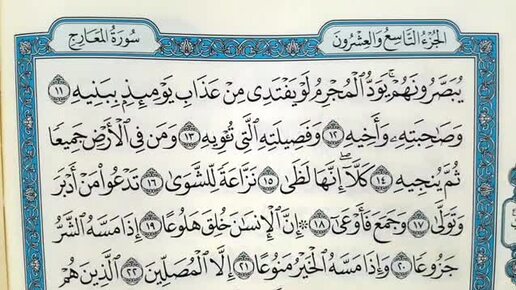 سُورَةُ المَعَارِجِ الجُزْءُ التَّاسِعُ وَالعِشْرُونَ
يُبَصَّرُونَهُمْ ۚ يَوَدُّ ٱلْمُجْرِمُ لَوْ يَفْتَدِى مِنْ عَذَابِ يَوْمِئِذٍۭ بِبَنِيهِ ١١
وَصَٰحِبَتِهِۦ وَأَخِيهِ ١٢ وَفَصِيلَتِهِ ٱلَّتِى تُـْٔوِيهِ ١٣ وَمَن فِى ٱلْأَرْضِ جَمِيعًا
ثُمَّ يُنجِيهِ ١٤ كَلَّآ ۖ إِنَّهَا لَظَىٰ ١٥ نَزَّاعَةً لِّلشَّوَىٰ ١٦ تَدْعُوا۟ مَنْ أَدْبَرَ
وَتَوَلَّىٰ ١٧ وَجَمَعَ فَأَوْعَىٰٓ ١٨ ۞ إِنَّ ٱلْإِنسَٰنَ خُلِقَ هَلُوعًا ١٩ إِذَا مَسَّهُ ٱلشَّرُّ
جَزُوعًا ٢٠ وَإِذَا مَسَّهُ ٱلْخَيْرُ مَنُوعًا ٢١ إِلَّا ٱلْمُصَلِّينَ ٢٢ ٱلَّذِينَ هُمْ